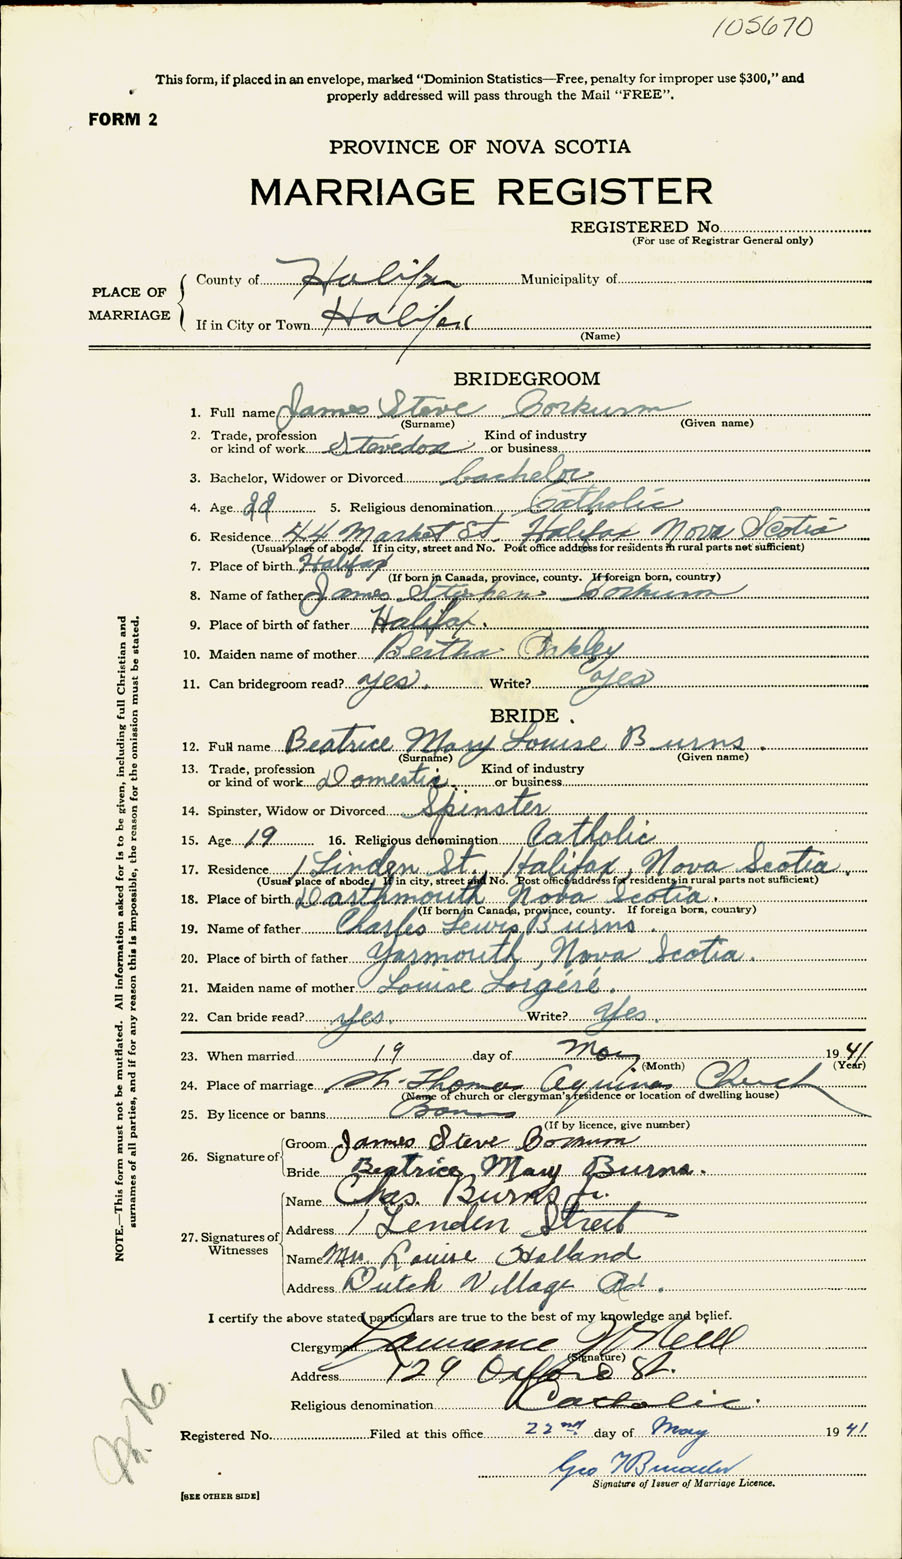 105670
This form, if placed in an envelope, marked "Dominion Statistics—Free, penalty for improper use $300," and
properly addressed will pass through the Mail "FREE".
FORM 2
PROVINCE OF NOVA SCOTIA
MARRIAGE REGISTER
REGISTERED No.
(For use of Registrar General only)
PLACE OF MARRIAGE
County of Halifax Municipality of
If in City or Town Halifax
(Name)
BRIDEGROOM
1. Full name James Steve Corkum
(Surname) (Given name)
2. Trade, profession or kind of work Stevedoa Kind of industry or business
3. Bachelor, Widower or Divorced bachelor
4. Age 22 5. Religious denomination Catholic
6. Residence 44 Market St. Halifax Nova Scotia
(Usual place of abode. If in city, street and No. Post office address for residents in rural parts not sufficient)
7. Place of birth Halifax
(If born in Canada, province, county. If foreign born, country)
8. Name of father James Stephen Corkum
9. Place of birth of father Halifax.
10. Maiden name of mother Bertha
11. Can bridegroom read? yes. Write? yes
BRIDE.
12. Full name Beatrice Mary Louise Burns.
(Surname) (Given name)
13. Trade, profession or kind of work Domestic. Kind of industry or business
14. Spinster, Widow or Divorced Spinster
15. Age 19 16. Religious denomination Catholic
17. Residence 1 Linden St., Halifax, Nova Scotia.
(Usual place of abode. If in city, street and No. Post office address for residents in rural parts not sufficient)
18. Place of birth Dartmouth Nova Scotia.
(If born in Canada, province, county. If foreign born, country)
19. Name of father Charles Lewis Burns.
20. Place of birth of father Yarmouth, Nova Scotia.
21. Maiden name of mother Louise Lorgéré.
22. Can bride read? yes. Write? Yes.
23. When married 19 day of May 1941
(Month) (Year)
24. Place of marriage St. Thomas Aquinas Church
(Name of church or clergyman's residence or location of dwelling house)
25. By licence or banns Banns
(If by licence, give number)
26. Signature of
Groom James Steve Corkum
Bride Beatrice Mary Burns.
27. Signatures of Witnesses
Name Chas. Burns Jr.
Address 1 Lenden Street
Name Mrs. Louise Holland
Address Dutch Village Rd.
I certify the above stated particulars are true to the best of my knowledge and belief.
Clergyman Lawrence J O'Neill
(Signature)
Address 129 Oxford St.
Religious denomination Catholic.
Registered No. Filed at this office 22nd day of May 1941
Geo
Signature of Issuer of Marriage Licence.
[SEE OTHER SIDE]
NOTE.—This form must not be mutilated. All information asked for is to be given, including full Christian and
surnames of all parties, and if for any reason this is impossible, the reason for the omission must be stated.